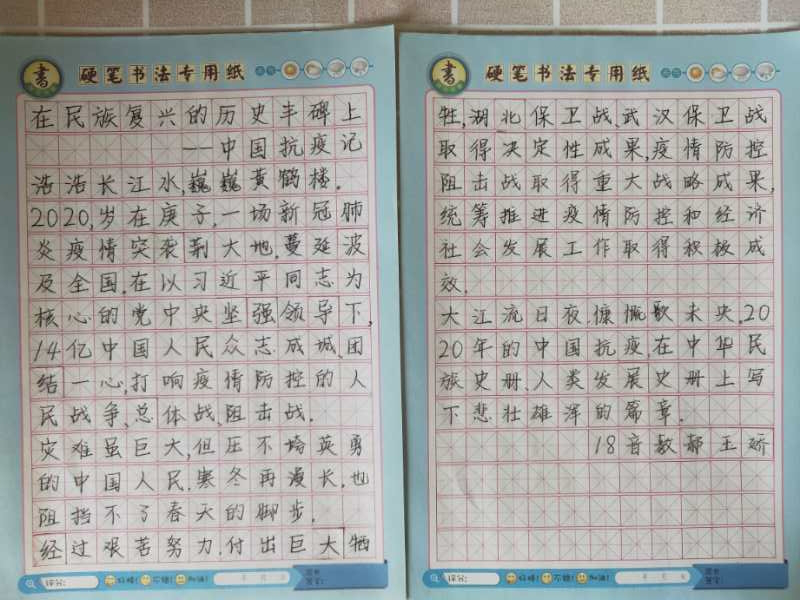 書
硬笔书法专用纸
在民族复兴的历史丰碑上
——中国抗疫记
浩浩长江水,巍巍黄鹤楼.
2020,岁在庚子,一场新冠肺
炎疫情突袭荆大地,蔓延波
及全国.在以习近平同志为
核心的党中央坚强领导下,
14亿中国人民众志成城,团
结一心,打响疫情防控的人
民战争,总体战,阻击战.
灾难虽巨大,但压不垮英勇
的中国人民.寒冬再漫长,也
阻挡不了春天的脚步.
经过艰苦努力.付出巨大牺
评分:
好棒!
不错!
加油!
年 月 日
書
硬笔书法专用纸
牲,湖北保卫战.武汉保卫战
取得决定性成果,疫情防控
阻击战取得重大战略成果,
统筹推进疫情防控和经济
社会发展工作取得积极成
效.
大江流日夜.慷慨歌未央.20
20年的中国抗疫.在中华民
族史册.人类发展史册上写
下悲壮雄浑的篇章.
18音教 郝玉娇
评分:
好棒!
不错!
加油!
年 月 日